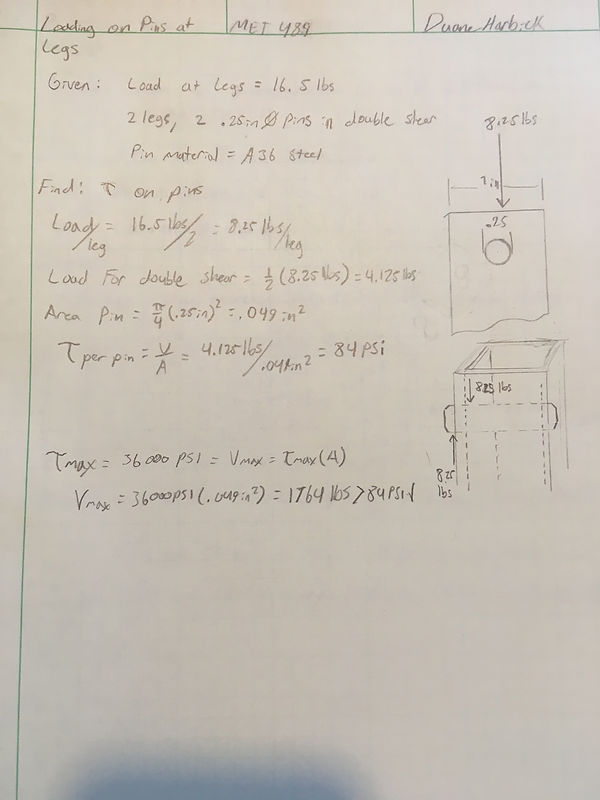 Loading on Pins at Legs
MET 489
Duane Harbick
Given: Load at Legs = 16.5 lbs
2 legs, 2 .25in Ø pins in double shear
Pin material = A36 steel
Find: τ on pins
Load/leg = 16.5 lbs/2 = 8.25 lbs/leg
Load For double shear = 1/2 (8.25 lbs) = 4.125 lbs
Area Pin = π/4 (.25in)² = .049 in²
τ per pin = V/A = 4.125 lbs/.049in² = 84 psi
τmax = 36000 PSI = Vmax = τmax(A)
Vmax = 36000PSI (.049in²) = 1764 lbs > 84 PSI √
8.25 lbs
in
.25
8.25 lbs
8.25 lbs